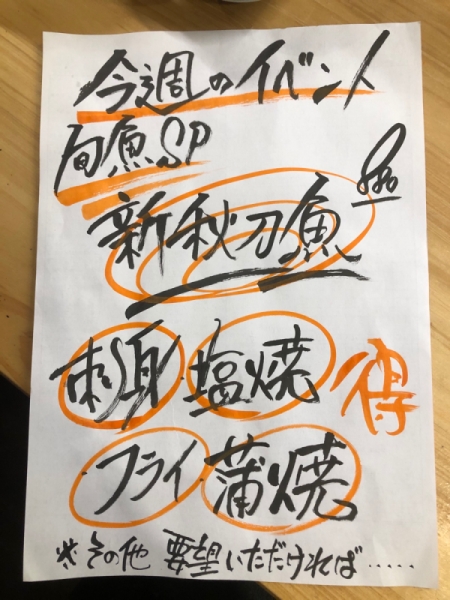 今週のイベント
旬魚SP
新秋刀魚
刺身 塩焼 得
フライ 蒲焼
※その他 要望いただければ.....